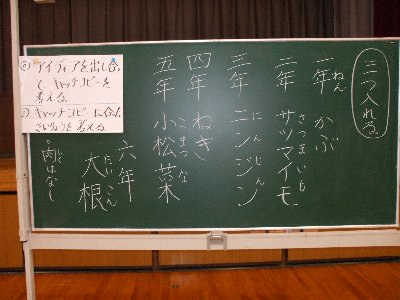 三つ入れる。
一年 かぶ
ねん
二年 サツマイモ
さつまいも
三年 ニンジン
にんじん
四年 ねぎ
五年 小松菜
こまつな
六年
大根
だいこん
◦肉はなし
アイディアを出し合っ
て、キャッチコピーを
考える。
キャッチコピーに合った
ざいりょうを考える。